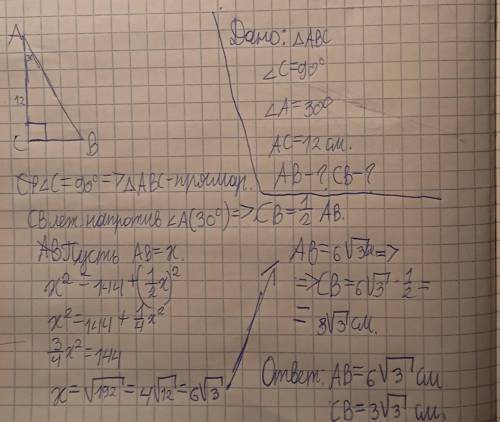 A
12
C
B
Дано: △ABC
∠C=90°
∠A=30°
AC=12 см.
AB-? CB-?
∠C=90° => △ABC-прямоуг.
CB леж. напротив ∠A(30°)=> CB=1/2 AB.
Пусть AB=x.
x²=144+(1/2x)²
x²=144+1/4x²
3/4x²=144
x=√192=4√12=6√3
AB=6√3 =>
=>CB=6√3·1/2=
=3√3 см.
Ответ: AB=6√3 см.
CB=3√3 см.